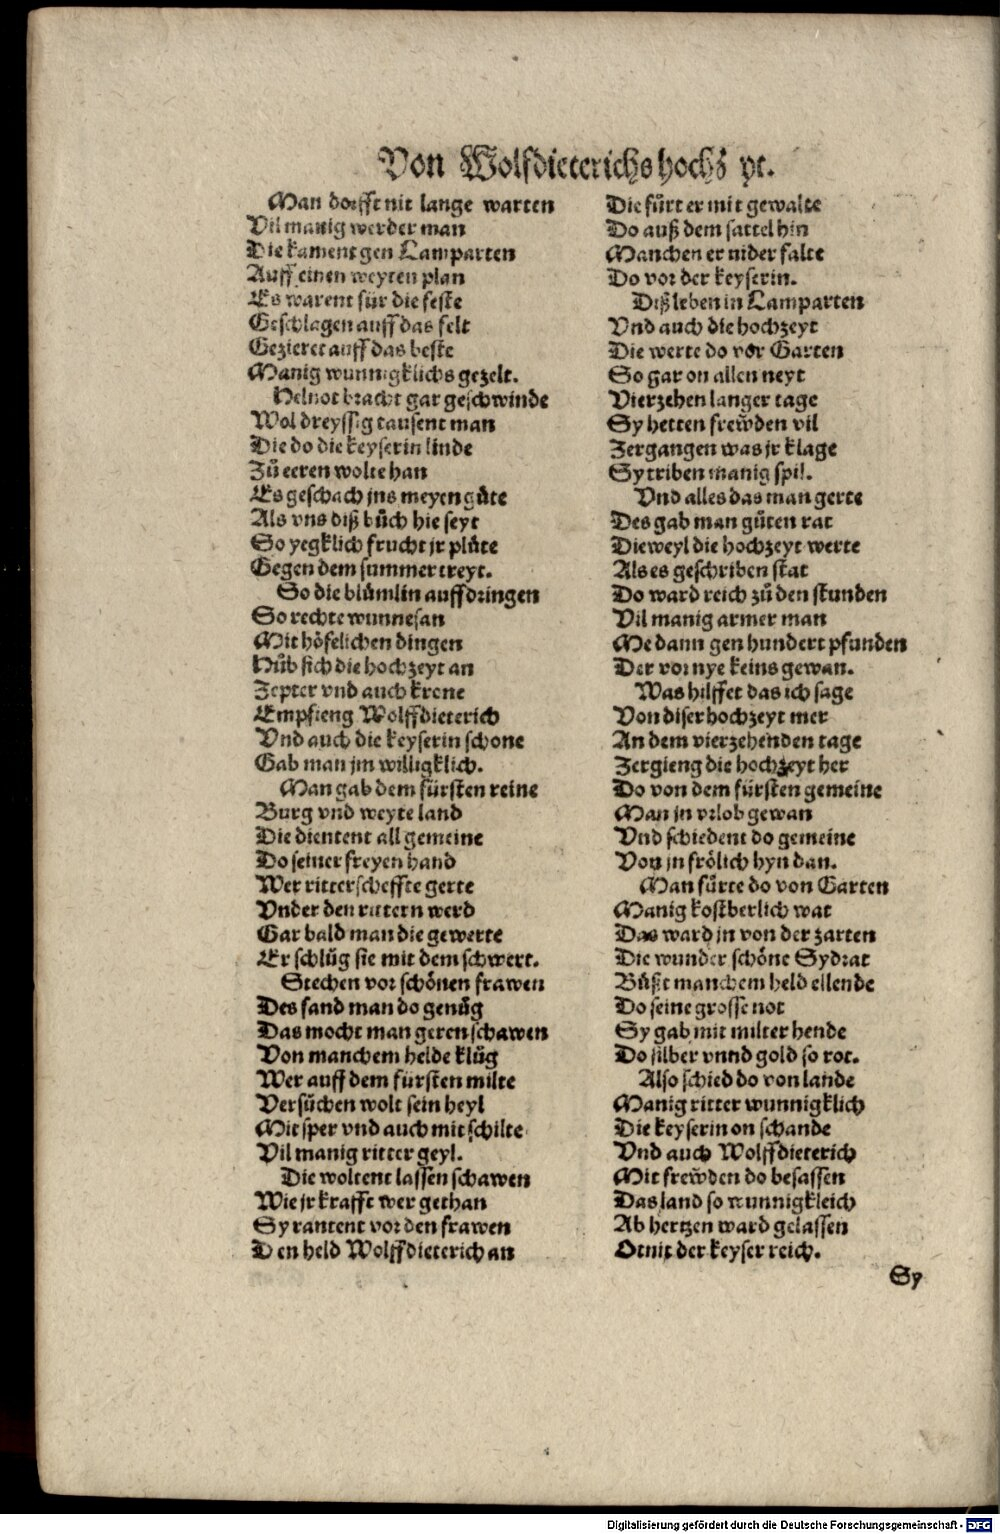 Von Wolfdieterichs hochz yt.
Man dorfft nit lange warten
Vil manig werder man
Die kament gen Lamparten
Auff einen weyten plan
Es warent für die feste
Geschlagen auff das felt
Gezieret auff das beste
Manig wunnigklichs gezelt.
Helnot bracht gar geschwinde
Wol dreyssig tausent man
Die do die keyserin linde
Zů eeren wolte han
Es geschach jns meyen gůte
Als vns diß bůch hie seyt
So yegklich frucht jr plůte
Gegen dem summer treyt.
So die blůmlin auffdringen
So rechte wunnesan
Mit höfelichen dingen
Hůb sich die hochzeyt an
Zepter vnd auch krone
Empfieng Wolffdieterich
Vnd auch die keyserin schone
Gab man jm willigklich.
Man gab dem fürsten reine
Burg vnd weyte land
Die dientent all gemeine
Do seiner freyen hand
Wer ritterscheffte gerte
Vnder den rittern werd
Gar bald man die gewerte
Er schlůg sie mit dem schwert.
Stechen vor schönen frawen
Des fand man do genůg
Das mocht man geren schawen
Von manchem helde klůg
Wer auff dem fürsten milte
Versůchen wolt sein heyl
Mit sper vnd auch mit schilte
Vil manig ritter geyl.
Die woltent lassen schawen
Wie jr krafft wer gethan
Sy rantent vor den frawen
Den held Wolffdieterich an
Die fürt er mit gewalte
Do auß dem sattel hin
Manchen er nider falte
Do vor der keyserin.
Diß leben in Lamparten
Vnd auch die hochzeyt
Die werte do vor Garten
So gar on allen neyt
Vierzehen langer tage
Sy hetten frewden vil
Zergangen was jr klage
Sy triben manig spil.
Vnd alles das man gerte
Des gab man gůten rat
Dieweyl die hochzeyt werte
Als es geschriben stat
Do ward reich zů den stunden
Vil manig armer man
Me dann gen hundert pfunden
Der vor nye keins gewan.
Was hilffet das ich sage
Von diser hochzeyt mer
An dem vierzehenden tage
Zergieng die hochzeyt her
Do von dem fürsten gemeine
Man jn vrlob gewan
Vnd schiedent do gemeine
Von jn frölich hyn dan.
Man fürte do von Garten
Manig kostberlich wat
Das ward jn von der zarten
Die wunder schöne Sydrat
Bůßt manchem held ellende
Do seine grosse not
Sy gab mit milter hende
Do silber vnnd gold so rot.
Also schied do von lande
Manig ritter wunnigklich
Die keyserin on schande
Vnd auch Wolffdieterich
Mit frewden do besassen
Das land so wunnigkleich
Ab hertzen ward gelassen
Otnit der keyser reich.
Sy
Digitalisierung gefördert durch die Deutsche Forschungsgemeinschaft - DFG